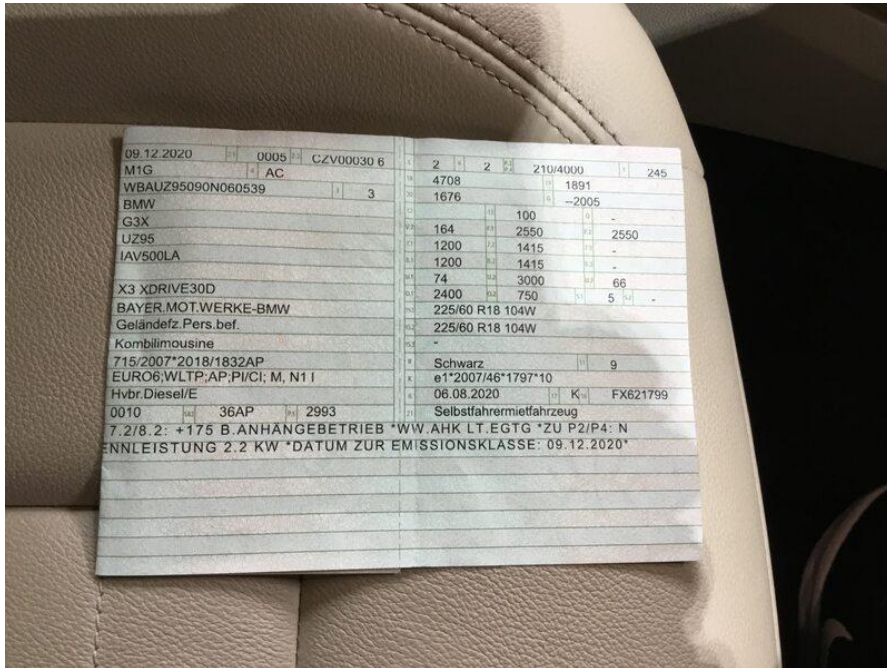 09.12.2020 0005 CZV00030 6
M1G AC
WBAUZ95090N060539 3
BMW
G3X
UZ95
IAV500LA
X3 XDRIVE30D
BAYER.MOT.WERKE-BMW
Geländefz.Pers.bef.
Kombilimousine
715/2007*2018/1832AP
EURO6;WLTP;AP;PI/CI; M, N1 I
Hybr.Diesel/E
0010 36AP 2993
2 2 210/4000 245
4708 1891
1676 --2005
100 -
164 2550 2550
1200 1415 -
1200 1415 -
74 3000 66
2400 750 5 -
225/60 R18 104W
225/60 R18 104W
-
Schwarz 9
e1*2007/46*1797*10
06.08.2020 K FX621799
Selbstfahrermietfahrzeug
7.2/8.2: +175 B.ANHÄNGEBETRIEB *WW.AHK LT.EGTG *ZU P2/P4: N
ENNLEISTUNG 2.2 KW *DATUM ZUR EMISSIONSKLASSE: 09.12.2020*